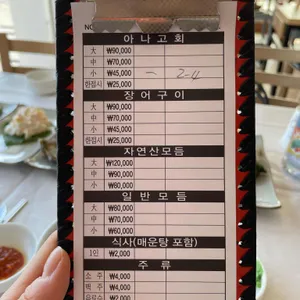 NO
아나고회
大 ₩90,000
中 ₩70,000
小 ₩45,000 一 2-4
한접시 ₩25,000
장어구이
大 ₩90,000
中 ₩70,000
小 ₩45,000
한접시 ₩25,000
자연산모듬
大 ₩120,000
中 ₩90,000
小 ₩60,000
일반모듬
大 ₩80,000
中 ₩70,000
小 ₩60,000
식사(매운탕 포함)
1인 ₩2,000
주류
소주 ₩4,000
맥주 ₩4,000
음료수 ₩2,000